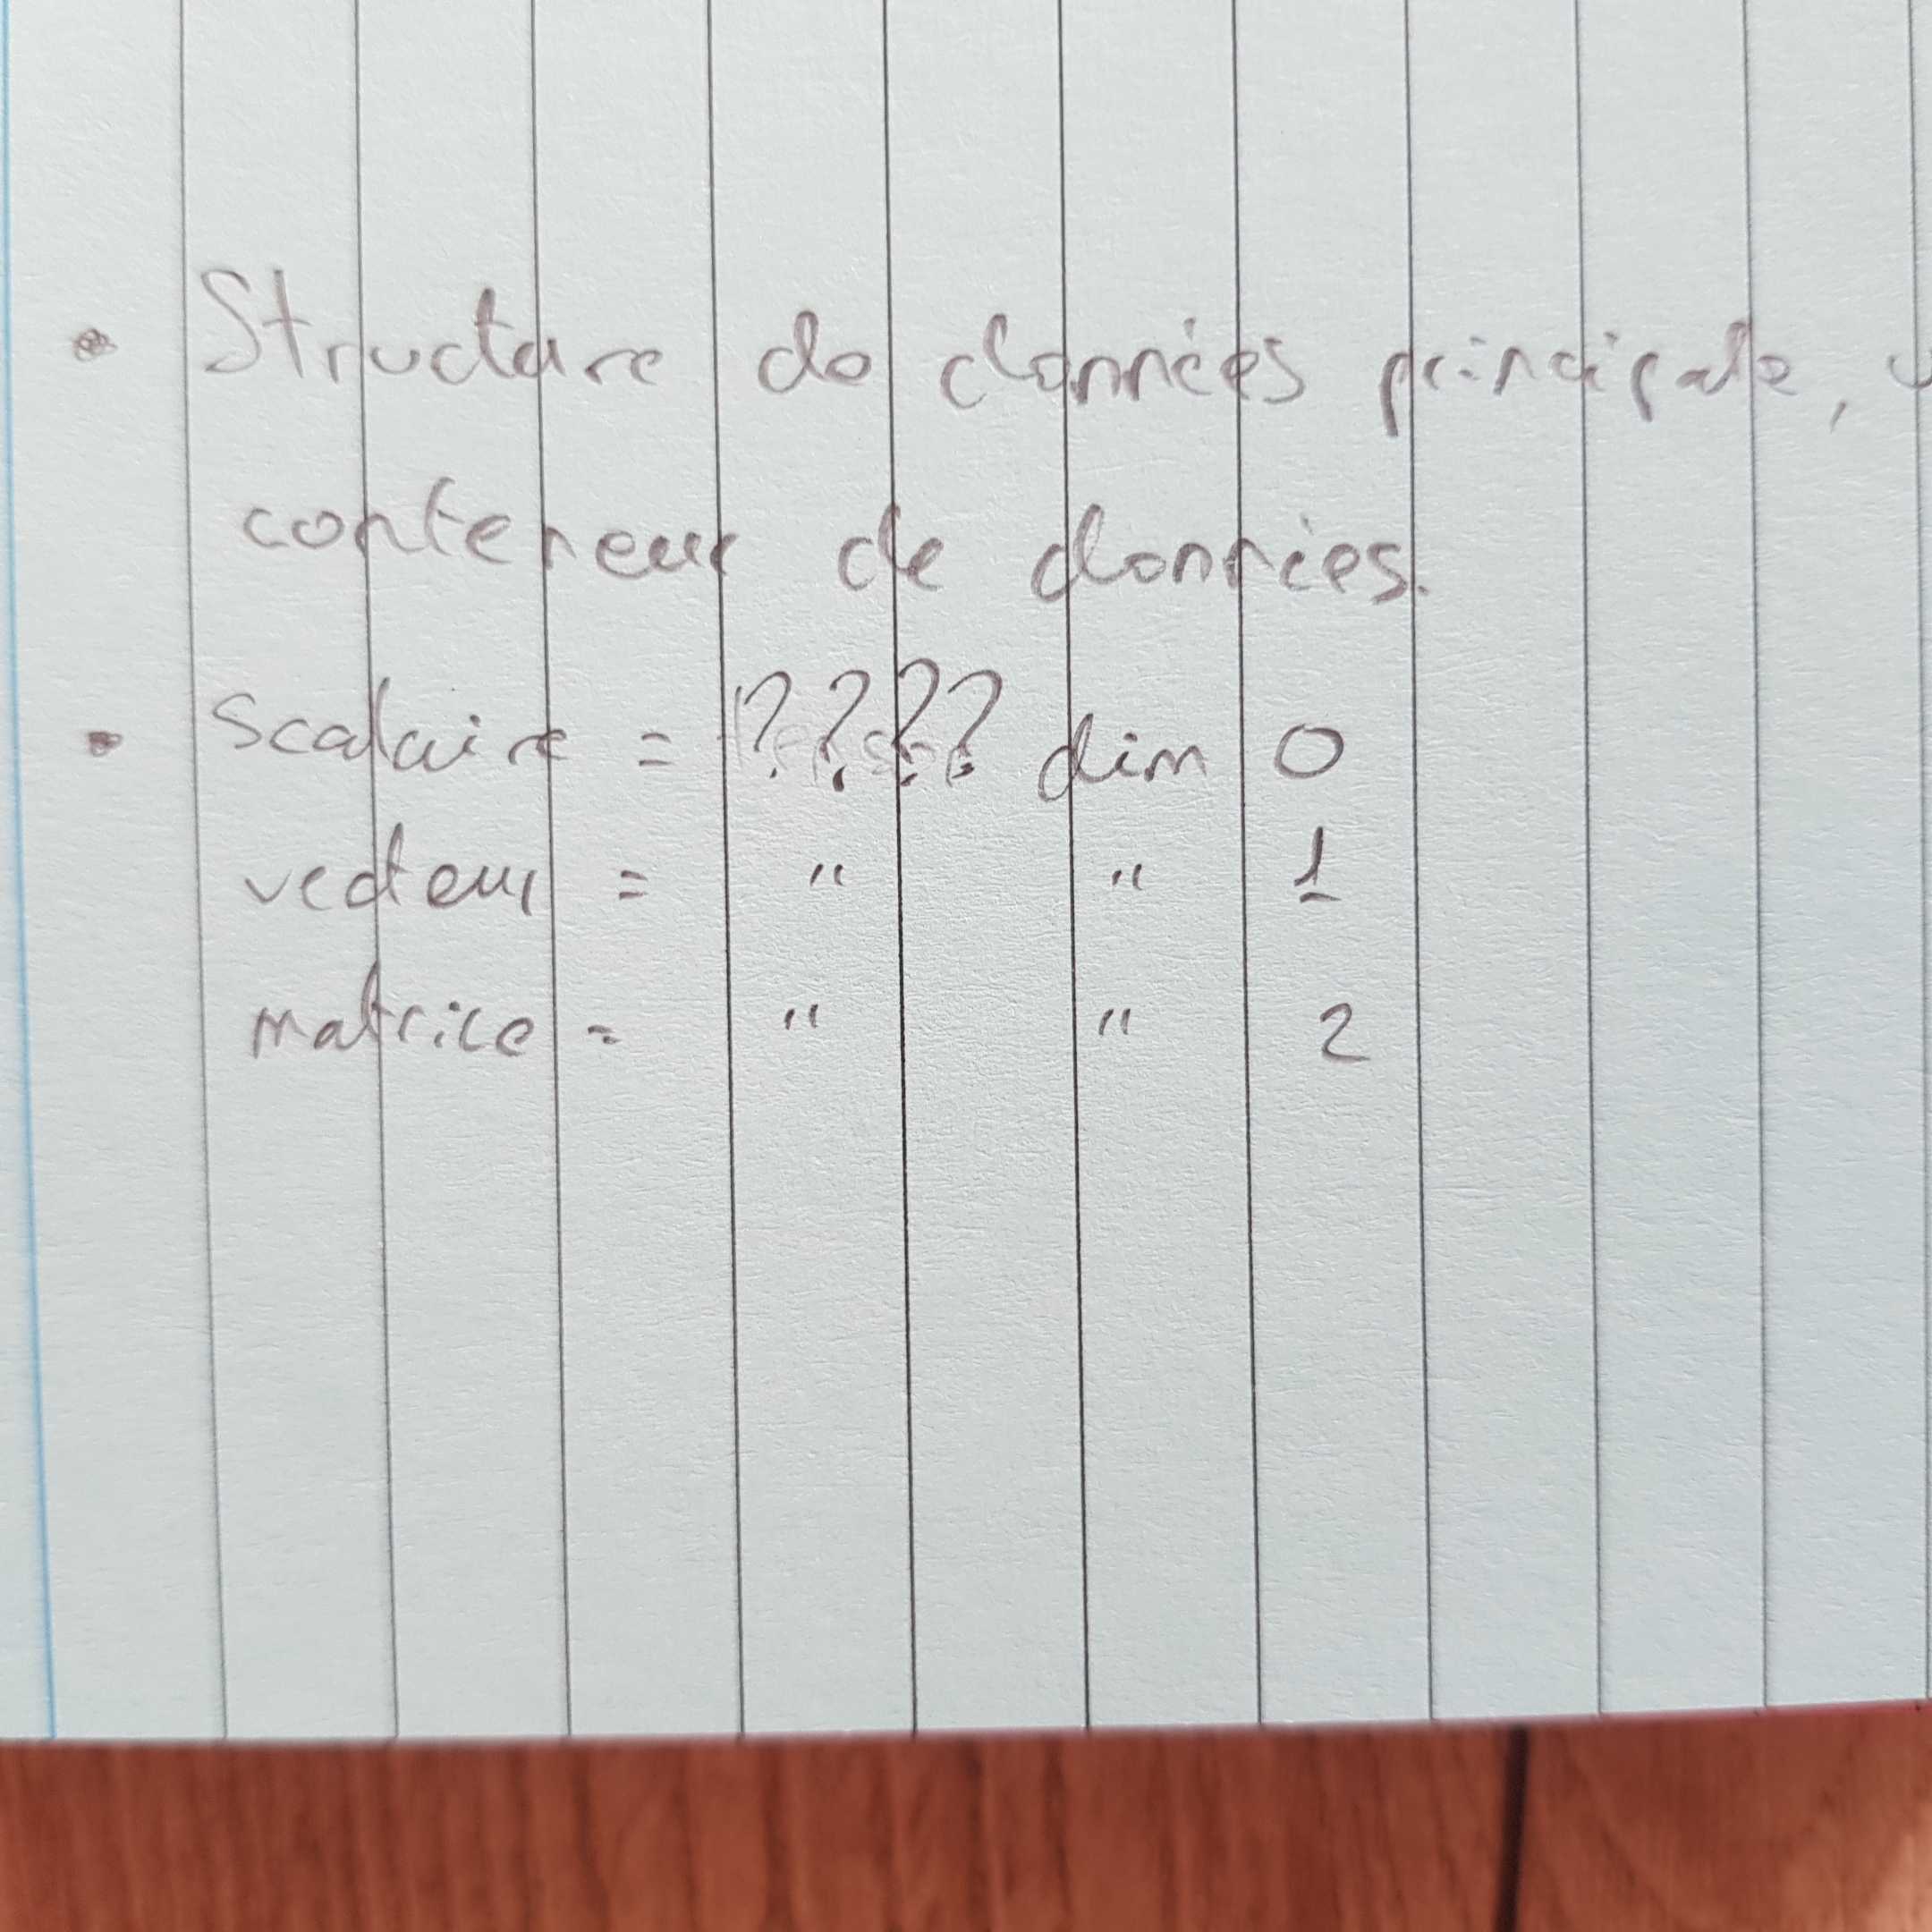 • Structure de données principale,
conteneur de données.
• Scalaire = ???? dim 0
vecteur = " " 1
matrice = " " 2